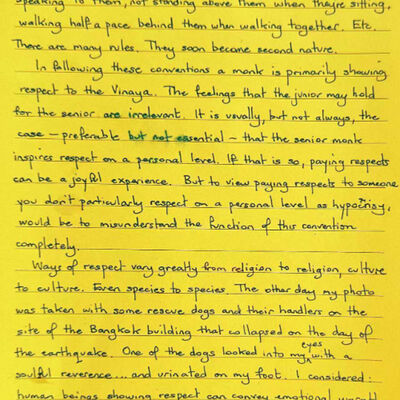 speaking to them, not standing above them when they're sitting,
walking half a pace behind them when walking together. Etc.
There are many rules. They soon become second nature.
In following these conventions a monk is primarily showing
respect to the Vinaya. The feelings that the junior may hold
for the senior are irrelevant. It is usually, but not always, the
case – preferable but not essential – that the senior monk
inspires respect on a personal level. If that is so, paying respects
can be a joyful experience. But to view paying respects to someone
you don't particularly respect on a personal level as hypocrisy,
would be to misunderstand the function of this convention
completely.
Ways of respect vary greatly from religion to religion, culture
to culture. Even species to species. The other day my photo
was taken with some rescue dogs and their handlers on the
site of the Bangkok building that collapsed on the day of
the earthquake. One of the dogs looked into my eyes with a
soulful reverence... and urinated on my foot. I considered:
human beings showing respect can convey emotional